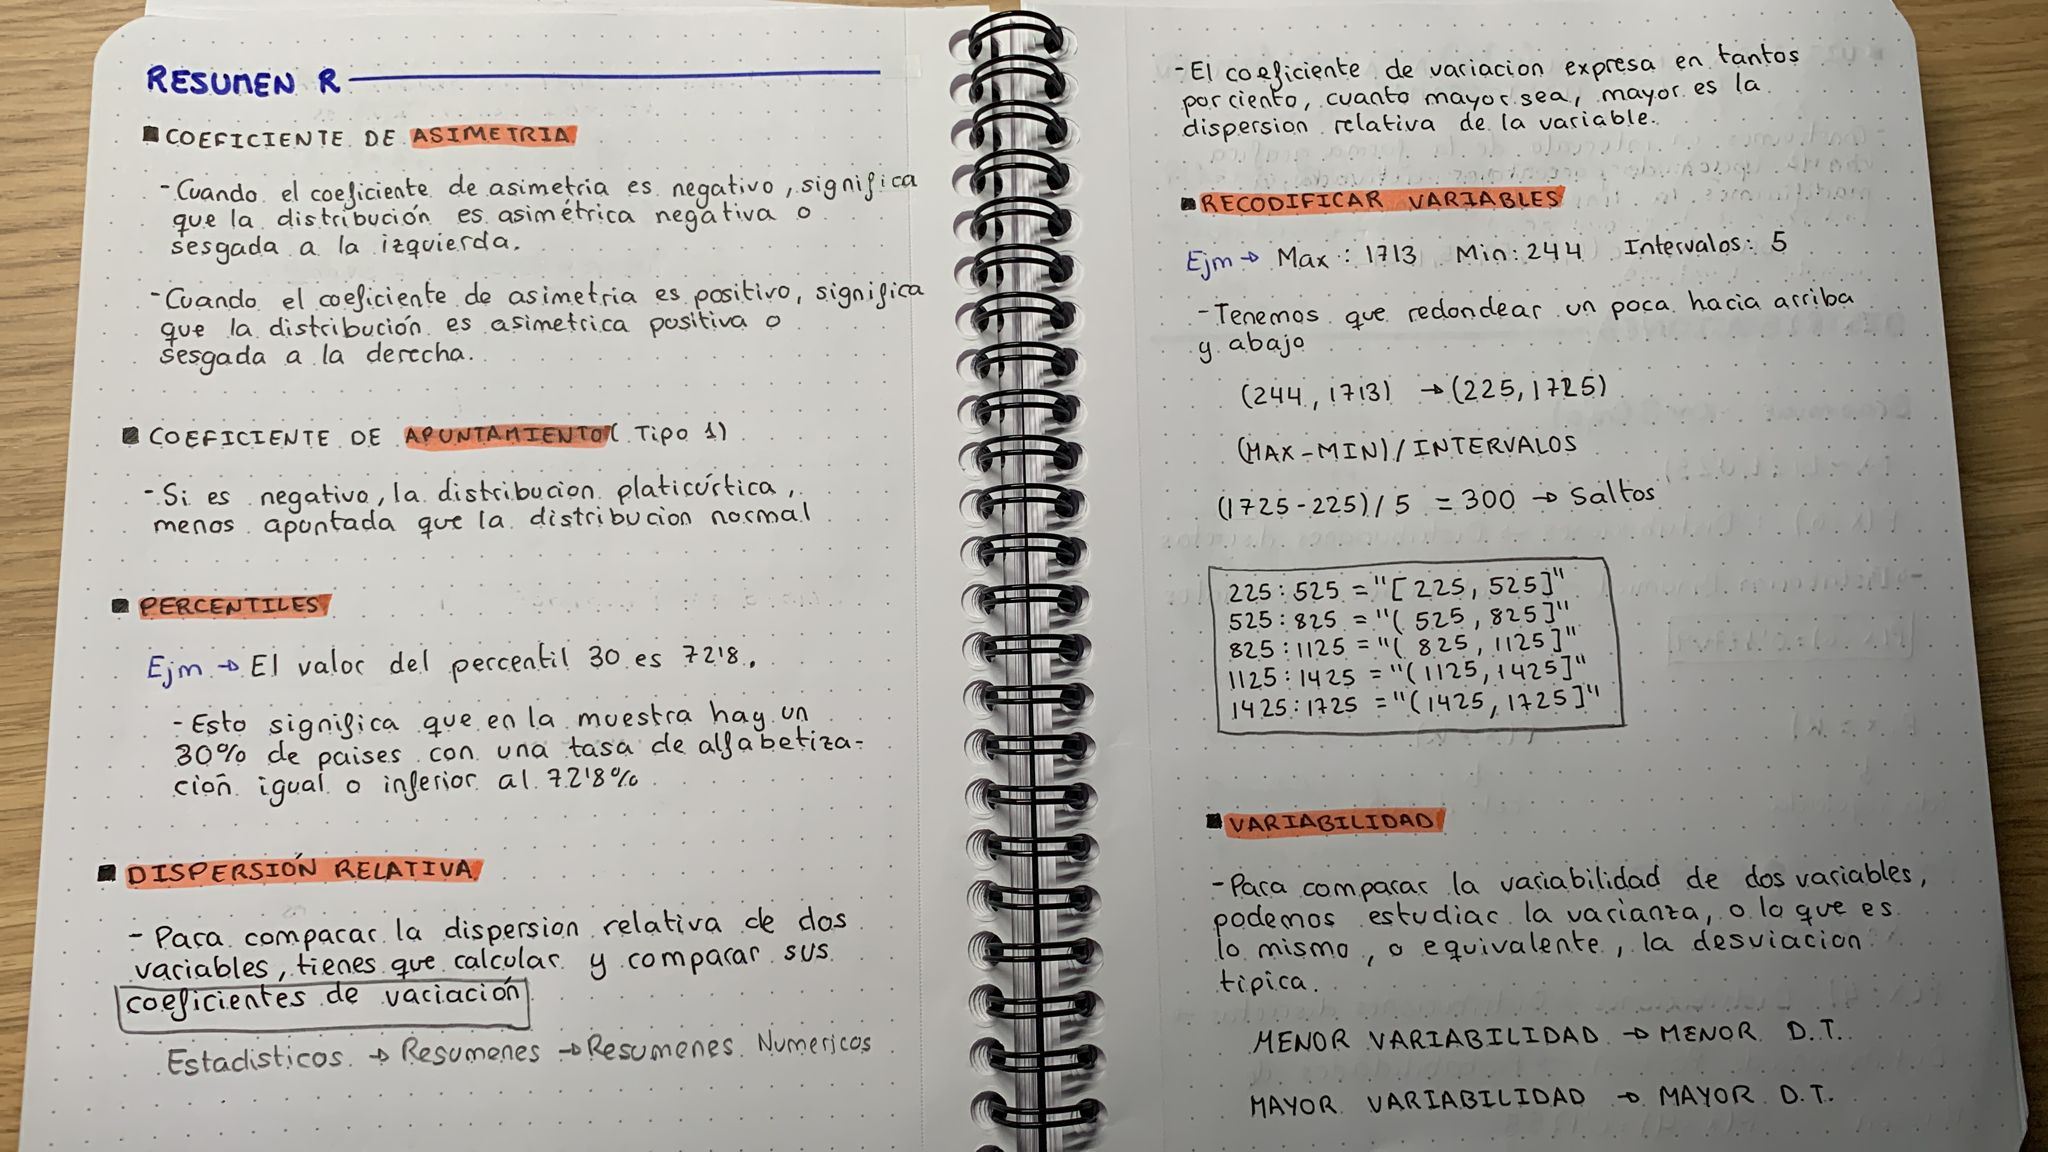 RESUMEN R
■ COEFICIENTE DE ASIMETRIA
- Cuando el coeficiente de asimetria es negativo, significa
que la distribución es asimétrica negativa o
sesgada a la izquierda.
- Cuando el coeficiente de asimetria es positivo, significa
que la distribución es asimetrica positiva o
sesgada a la derecha.
■ COEFICIENTE DE APUNTAMIENTO (Tipo 1)
- Si es negativo, la distribucion platicúrtica,
menos apuntada que la distribucion normal
■ PERCENTILES
Ejm → El valor del percentil 30 es 72'8.
- Esto significa que en la muestra hay un
30% de paises con una tasa de alfabetiza-
ción igual o inferior al 72'8%
■ DISPERSIÓN RELATIVA
- Para comparar la dispersion relativa de dos
variables, tienes que calcular y comparar sus
coeficientes de variación
Estadisticos → Resumenes → Resumenes Numericos
- El coeficiente de variacion expresa en tantos
por ciento, cuanto mayor sea, mayor es la
dispersion relativa de la variable.
■ RECODIFICAR VARIABLES
Ejm → Max: 1713 Min: 244 Intervalos: 5
- Tenemos que redondear un poca hacia arriba
y abajo
(244, 1713) → (225, 1725)
(MAX-MIN) / INTERVALOS
(1725-225) / 5 = 300 → Saltos
225:525 = "[225, 525]"
525:825 = "(525, 825]"
825:1125 = "(825, 1125]"
1125:1425 = "(1125, 1425]"
1425:1725 = "(1425, 1725]"
■ VARIABILIDAD
- Para comparar la variabilidad de dos variables,
podemos estudiar la varianza, o lo que es
lo mismo, o equivalente, la desviacion
tipica.
MENOR VARIABILIDAD → MENOR D.T.
MAYOR VARIABILIDAD → MAYOR D.T.